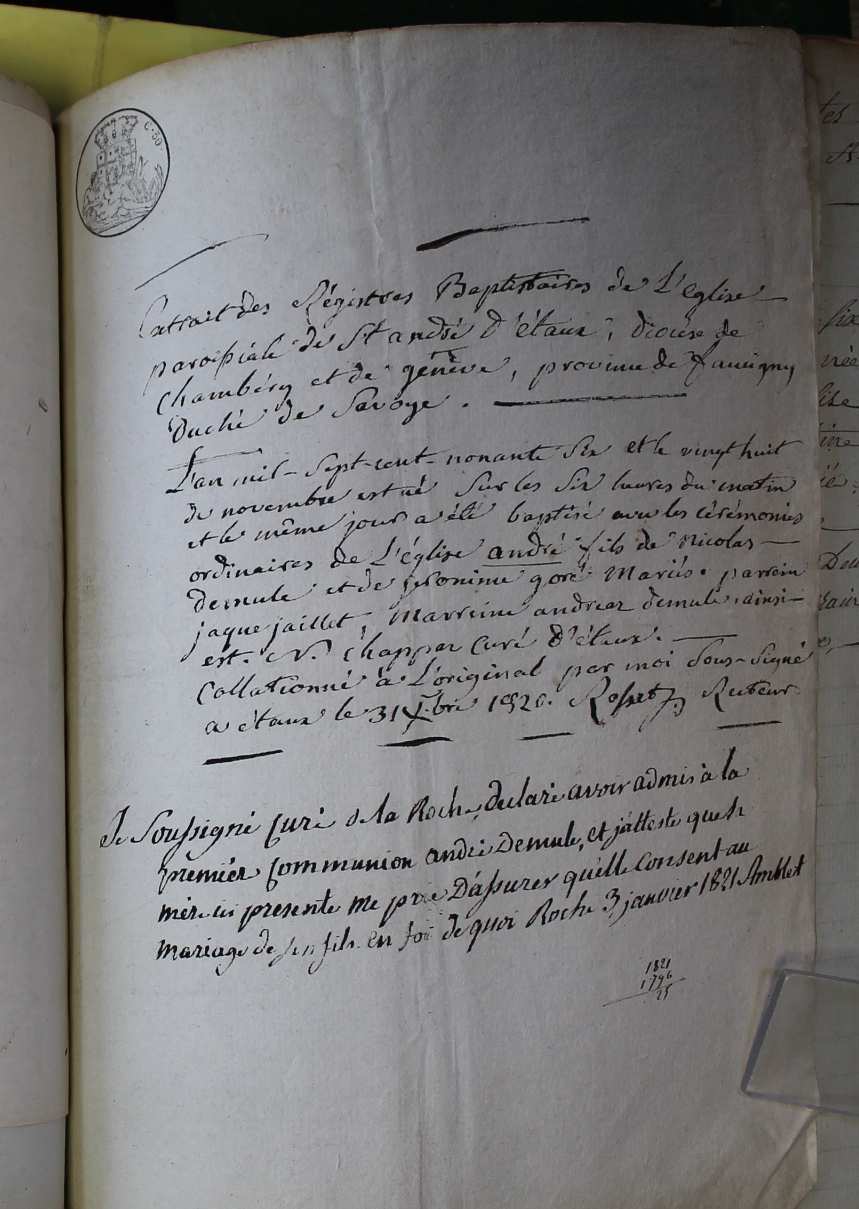 C. 50
Extrait des Régistres Baptistaires de L'eglise
paroissiale de St andré D'étaux, diocèse de
Chambéry et de genève, province de faucigny
Duché de Savoye.
L'an mil-sept-cent-nonante six et le vingt huit
de novembre est né sur les six heures du matin
et le même jour a été baptisé avec les cérémonies
ordinaires de L'église andré fils de Nicolas
demule et de jeronime goré Mariés. parrein
jaque jaillet, Marreine andréaz demule. ainsi
est. N. Chappaz Curé D'étaux.
Collationné à L'original par moi Sous-signé
a étaux le 31 Xbre 1820. Rosset Recteur
Je Soussigné Curé de la Roche, declare avoir admis à la
premiér Communion andré Demule, et j'atteste que sa
mére ici presente me prie D'assurer qu'elle Consent au
mariage de son fils. en foi de quoi Roche 3 janvier 1821 Amblet
1821
1796
25